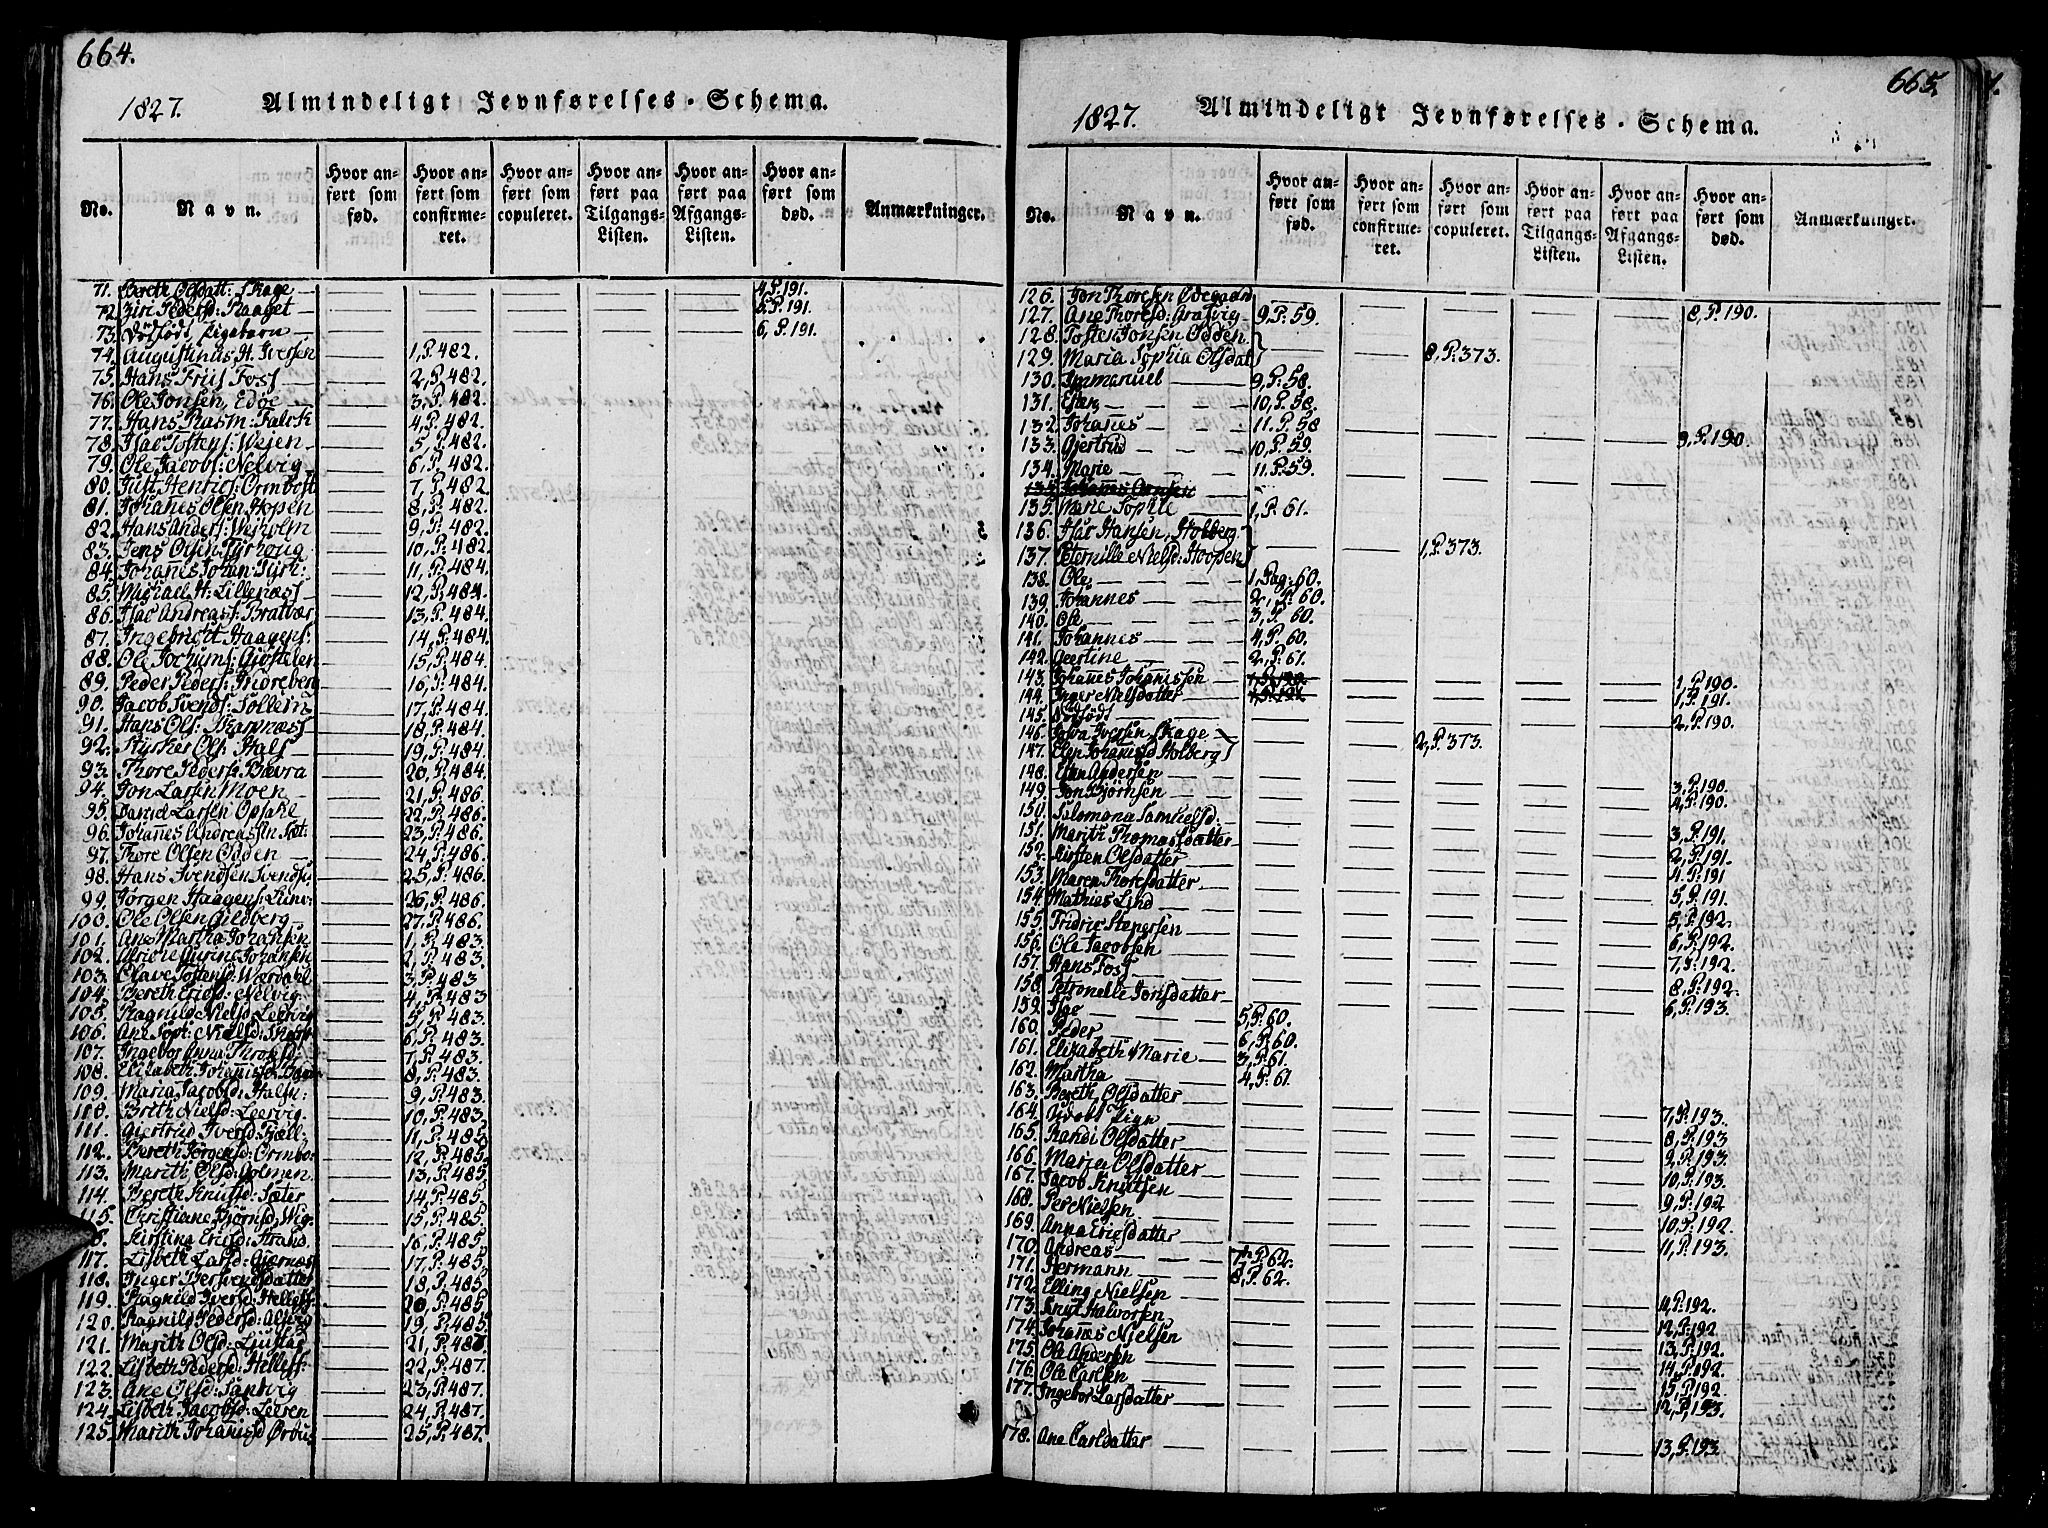 664.
1827. Almindeligt Jevnførelses-Schema.
No. Navn. Hvor anført som fød. Hvor anført som confirmeret. Hvor anført som copuleret. Hvor anført paa Tilgangs-Listen. Hvor anført paa Afgangs-Listen. Hvor anført som død. Anmærkninger.
71. Bereth Olsdatt: Skage 4, P. 191.
72. Siri Pedersd: Raaget 5, P. 191.
73. Dødfødt Pigebarn 6, P. 191.
74. Augustinus H. Iversen 1, P. 482.
75. Hans Friis Foss 2, P. 482.
76. Ole Jonsen, Edøe 3, P. 482.
77. Hans Rasm: Falch 4, P. 482.
78. Isac Tostens: Weien 5, P. 482.
79. Ole Jacobs: Nelvig 6, P. 482.
80. Just Henrics: Ormbost 7, P. 482.
81. Johan̄es Olsen Hopen 8, P. 482.
82. Hans Anders: Weiholm 9, P. 482.
83. Jens Olsen Tyrhoug 10, P. 482.
84. Johan̄es Johan: Tyrh: 11, P. 484.
85. Michael H: Lillenæss 12, P. 484.
86. Isac Andreass: Bratvær 13, P. 484.
87. Ingebrict Haagens: 14, P. 484.
88. Ole Jochums: Gjøstelen 15, P. 484.
89. Peder Peders: Indreberg 16, P. 484.
90. Jacob Svends: Sollem 17, P. 484.
91. Hans Ols: Skarpnæss 18, P. 484.
92. Styrker Ols: Hals 19, P. 484.
93. Thore Peders: Bævra 20, P. 484.
94. Jon Larsen Moen 21, P. 486.
95. Daniel Larsen Opdahl 22, P. 486.
96. Johan̄es Andreassen Sæt: 23, P. 486.
97. Thore Olsen Odden 24, P. 486.
98. Hans Svendsen Svends: 25, P. 486.
99. Jørgen Haagens: Lunv: 26, P. 486.
100. Ole Olsen Gildberg 27, P. 486.
101. Ane Martha Johansen 1, P. 483.
102. Gurine Johansen 2, P. 483.
103. Olave 3, P. 483
104. Bereth Ericsd: Nelvig 4, P. 483
105. Ragnild Nielsd: Leervig 5, P. 483.
106. Ane Soph: Nielsd: 6, P. 483.
107. Ingebor Anna Thronds: 7, P. 483.
108. Elisabeth Johanisd: 8, P. 483.
109. Maria Jacobsd: Halsn: 9, P. 483.
110. Brith Nielsd: Leervig 10, P. 483.
111. Giertrud Iversd: Fjæll: 11, P. 485
112. Bereth Jørgensd: Ormbo: 12, P. 485.
113. Marith Olsd: Golmen 13, P. 485
114. Bereth Knutsd: Sæter 14, P. 485.
115. Christiane Bjørnsd: Wig. 15, P. 485.
Kirstina Ericsd: Strand 16, P. 485.
117. Lisbeth Larsd: Gjernæss 17, P. 485.
118. Inger Bersvendsdatter 18, P. 485.
119. Ragnild Iversd: Helless: 20, P. 485.
120. Ragnild Pedersd: Alsvig 19, P. 485.
121. Marith Olsd: Ljustad 21, P. 486
122. Lisbeth Pedersd: Helless: 22, P. 487.
123. Ane Olsd: Sandvig 23, P. 487.
124. Lisbeth Jacobsd: Leeren 24, P. 487.
125. Marith Johan̄isd Ørbus 25, P. 487.
665.
1827. Almindeligt Jevnførelses-Schema.
No. Navn. Hvor anført som fød. Hvor anført som confirmeret. Hvor anført som copuleret. Hvor anført paa Tilgangs-Listen. Hvor anført paa Afgangs-Listen. Hvor anført som død. Anmærkninger.
126. Jon Thoresen Ødegaard 8, P. 190.
127. Ane Thoresd: Grasvig 9, P. 59.
128. Tosten Jonsen Odden
129. Maria Sophia Olsdat 8, P. 373.
130. Immanuel 9, P. 58.
131. Esten 10, P. 58.
132. Johan̄es 11, P. 58
133. Gjertrud 10, P. 59. 9, P. 190
134. Marie 11, P. 59.
135. Marie Sophie 1, P. 61.
136. Isac Hansen, Holberg
137. Peternille Nielsd: Hoopen 1, P. 373.
138. Ole 1, Pag: 60.
139. Johannes 2, P. 60.
140. Ole 3, P. 60.
141. Johannes 4, P. 60.
142. Geertine 2, P. 61.
143. Johan̄es Johan̄issen 1, P. 190.
144. Inger Nielsdatter 1, P. 191.
145. Dødfødt 2, P. 190.
146. Iversen Skage
147. Elen Johan̄isd Holberg 2, P. 373.
148. Andersen 3, P. 190.
149. Jon Bjørnsen 4, P. 190.
150. Salomona Samuelsd: 3, P. 191.
151. Marith Thomassdatter 2, P. 191.
152. Kirsten Olsdatter 4, P. 191
153. Maren Thoresdatter 5, P. 191.
154. Mathies Lind 5, P. 192.
155. Fridric Stenersen 6, P. 192.
156. Ole Jacobsen 7, P. 192.
157. Hans Foss 8, P. 192.
158. Petronelle Jonsdatter 6, P. 193.
159. 5, P. 60.
160. Peder 6, P. 60.
161. Elizabeth Marie 3, P. 61.
162. Martha 4, P. 61.
163. Bereth Olsdatter 7, P. 193.
164. Udøbt Pign 8, P. 193
165. Randi Olsdatter 9, P. 193.
166. Maria Olsdatter 10, P. 193.
167. Jacob Knutsen 9, P. 192
168. Per Nielsen 10, P. 192.
169. Anna Ericsdatter 11, P. 193.
170. Andreas 7, P. 62.
171. Hermann 8, P. 62.
172. Elling Nielsen 11, P. 192.
173. Knut Halvorsen 12, P. 192
174. Johan̄es Nielsen 13, P. 192.
175. Ole Andersen 14, P. 192.
176. Ole Carlsen 15, P. 192
177. Ingebor Larsdatter 12, P. 193.
178. Ane Carlsdatter 13, P. 193.